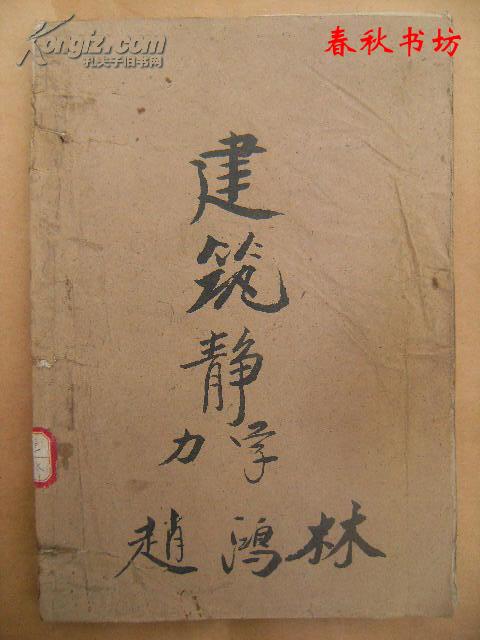 Kongfz.com
孔夫子旧书网
春秋书坊
建
筑
静
力学
趙鴻林